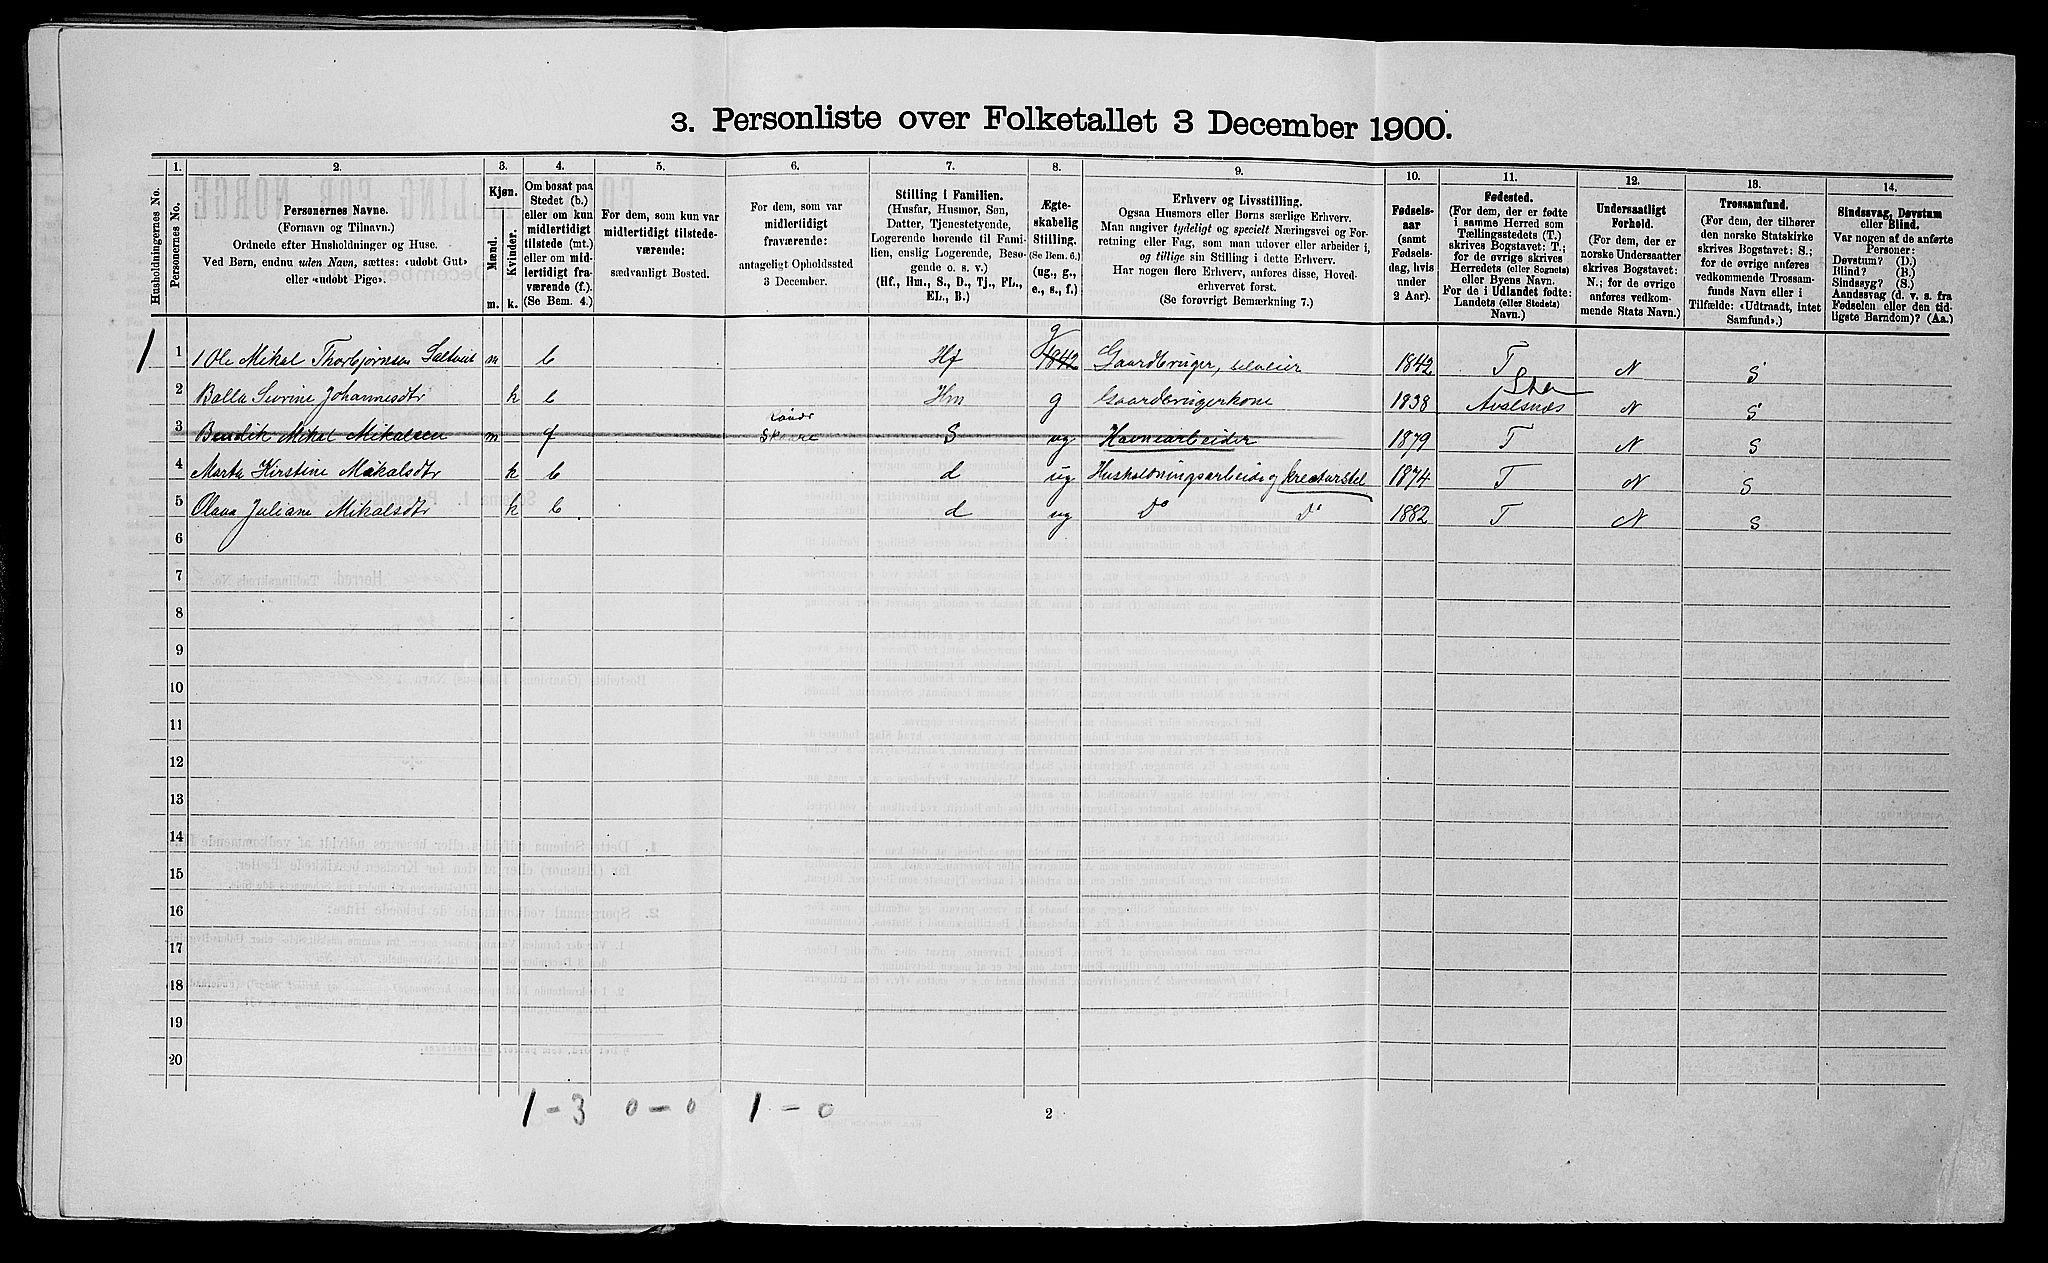 3. Personliste over Folketallet 3 December 1900.
1. 2. 3. 4. 5. 6. 7. 8. 9. 10. 11. 12. 13. 14.
Husholdningernes No.
Personernes No.
Personernes Navne.
(Fornavn og Tilnavn.)
Ordnede efter Husholdninger og Huse.
Ved Børn, endnu uden Navn, sættes: «udøbt Gut»
eller «udøbt Pige».
Kjøn.
Mænd.
Kvinder.
m. k.
Om bosat paa
Stedet (b.)
eller om kun
midlertidigt
tilstede (mt.)
eller om mid-
lertidigt fra-
værende (f.)
(Se Bem. 4.)
For dem, som kun var
midlertidigt tilstede-
værende:
sædvanligt Bosted.
For dem, som var
midlertidigt
fraværende:
antageligt Opholdssted
3 December.
Stilling i Familien.
(Husfar, Husmor, Søn,
Datter, Tjenestetyende,
Logerende hørende til Fami-
lien, enslig Logerende, Besø-
gende o. s. v.)
(Hf., Hm., S., D., Tj., FL.,
EL., B.)
Ægte-
skabelig
Stilling.
(Se Bem. 6.)
(ug., g.,
e., s., f.)
Erhverv og Livsstilling.
Ogsaa Husmors eller Børns særlige Erhverv.
Man angiver tydeligt og specielt Næringsvei og For-
retning eller Fag, som man udøver eller arbeider i,
og tillige sin Stilling i dette Erhverv.
Har nogen flere Erhverv, anføres disse, Hoved-
erhvervet først.
(Se forøvrigt Bemærkning 7.)
Fødsels-
aar
(samt
Fødsels-
dag, hvis
under
2 Aar).
Fødested.
(For dem, der er fødte
i samme Herred som
Tællingsstedets (T.)
skrives Bogstavet: T.;
for de øvrige skrives
Herredets (eller Sognets)
eller Byens Navn.
For de i Udlandet fødte:
Landets (eller Stedets)
Navn.)
Undersaatligt
Forhold.
(For dem, der er
norske Undersaatter
skrives Bogstavet:
N.; for de øvrige
anføres vedkom-
mende Stats Navn.)
Trossamfund.
(For dem, der tilhører
den norske Statskirke
skrives Bogstavet: S.;
for de øvrige anføres
vedkommende Trossam-
funds Navn eller i
Tilfælde: «Udtraadt, intet
Samfund».)
Sindssvag, Døvstum
eller Blind.
Var nogen af de anførte
Personer:
Døvstum? (D.)
Blind? (B.)
Sindssyg? (S.)
Aandssvag (d. v. s. fra
Fødselen eller den tid-
ligste Barndom)? (Aa.)
1 1 1 Ole Mikal Thorbjørnsen Saltveit m b Hf 1842 g Gaardbruger, selveier 1842 T N S
2 Balla Sevrine Johannesdtr k b Hm g Gaardbrugerkone 1838 Avalsnæs N S
3 Bendik Mikal Mikalsen m f Skaare S ug Havnearbeider 1879 T N S
4 Marta Kirstine Mikalsdtr k b d ug Husholdningsarbeide og kreaturstel 1874 T N S
5 Olava Juliane Mikalsdtr k b d ug Do Do 1882 T N S
6
7
8
9
10
11
12
13
14
15
16
17
18
19
20
1 - 3 0 - 0 1 - 0
2